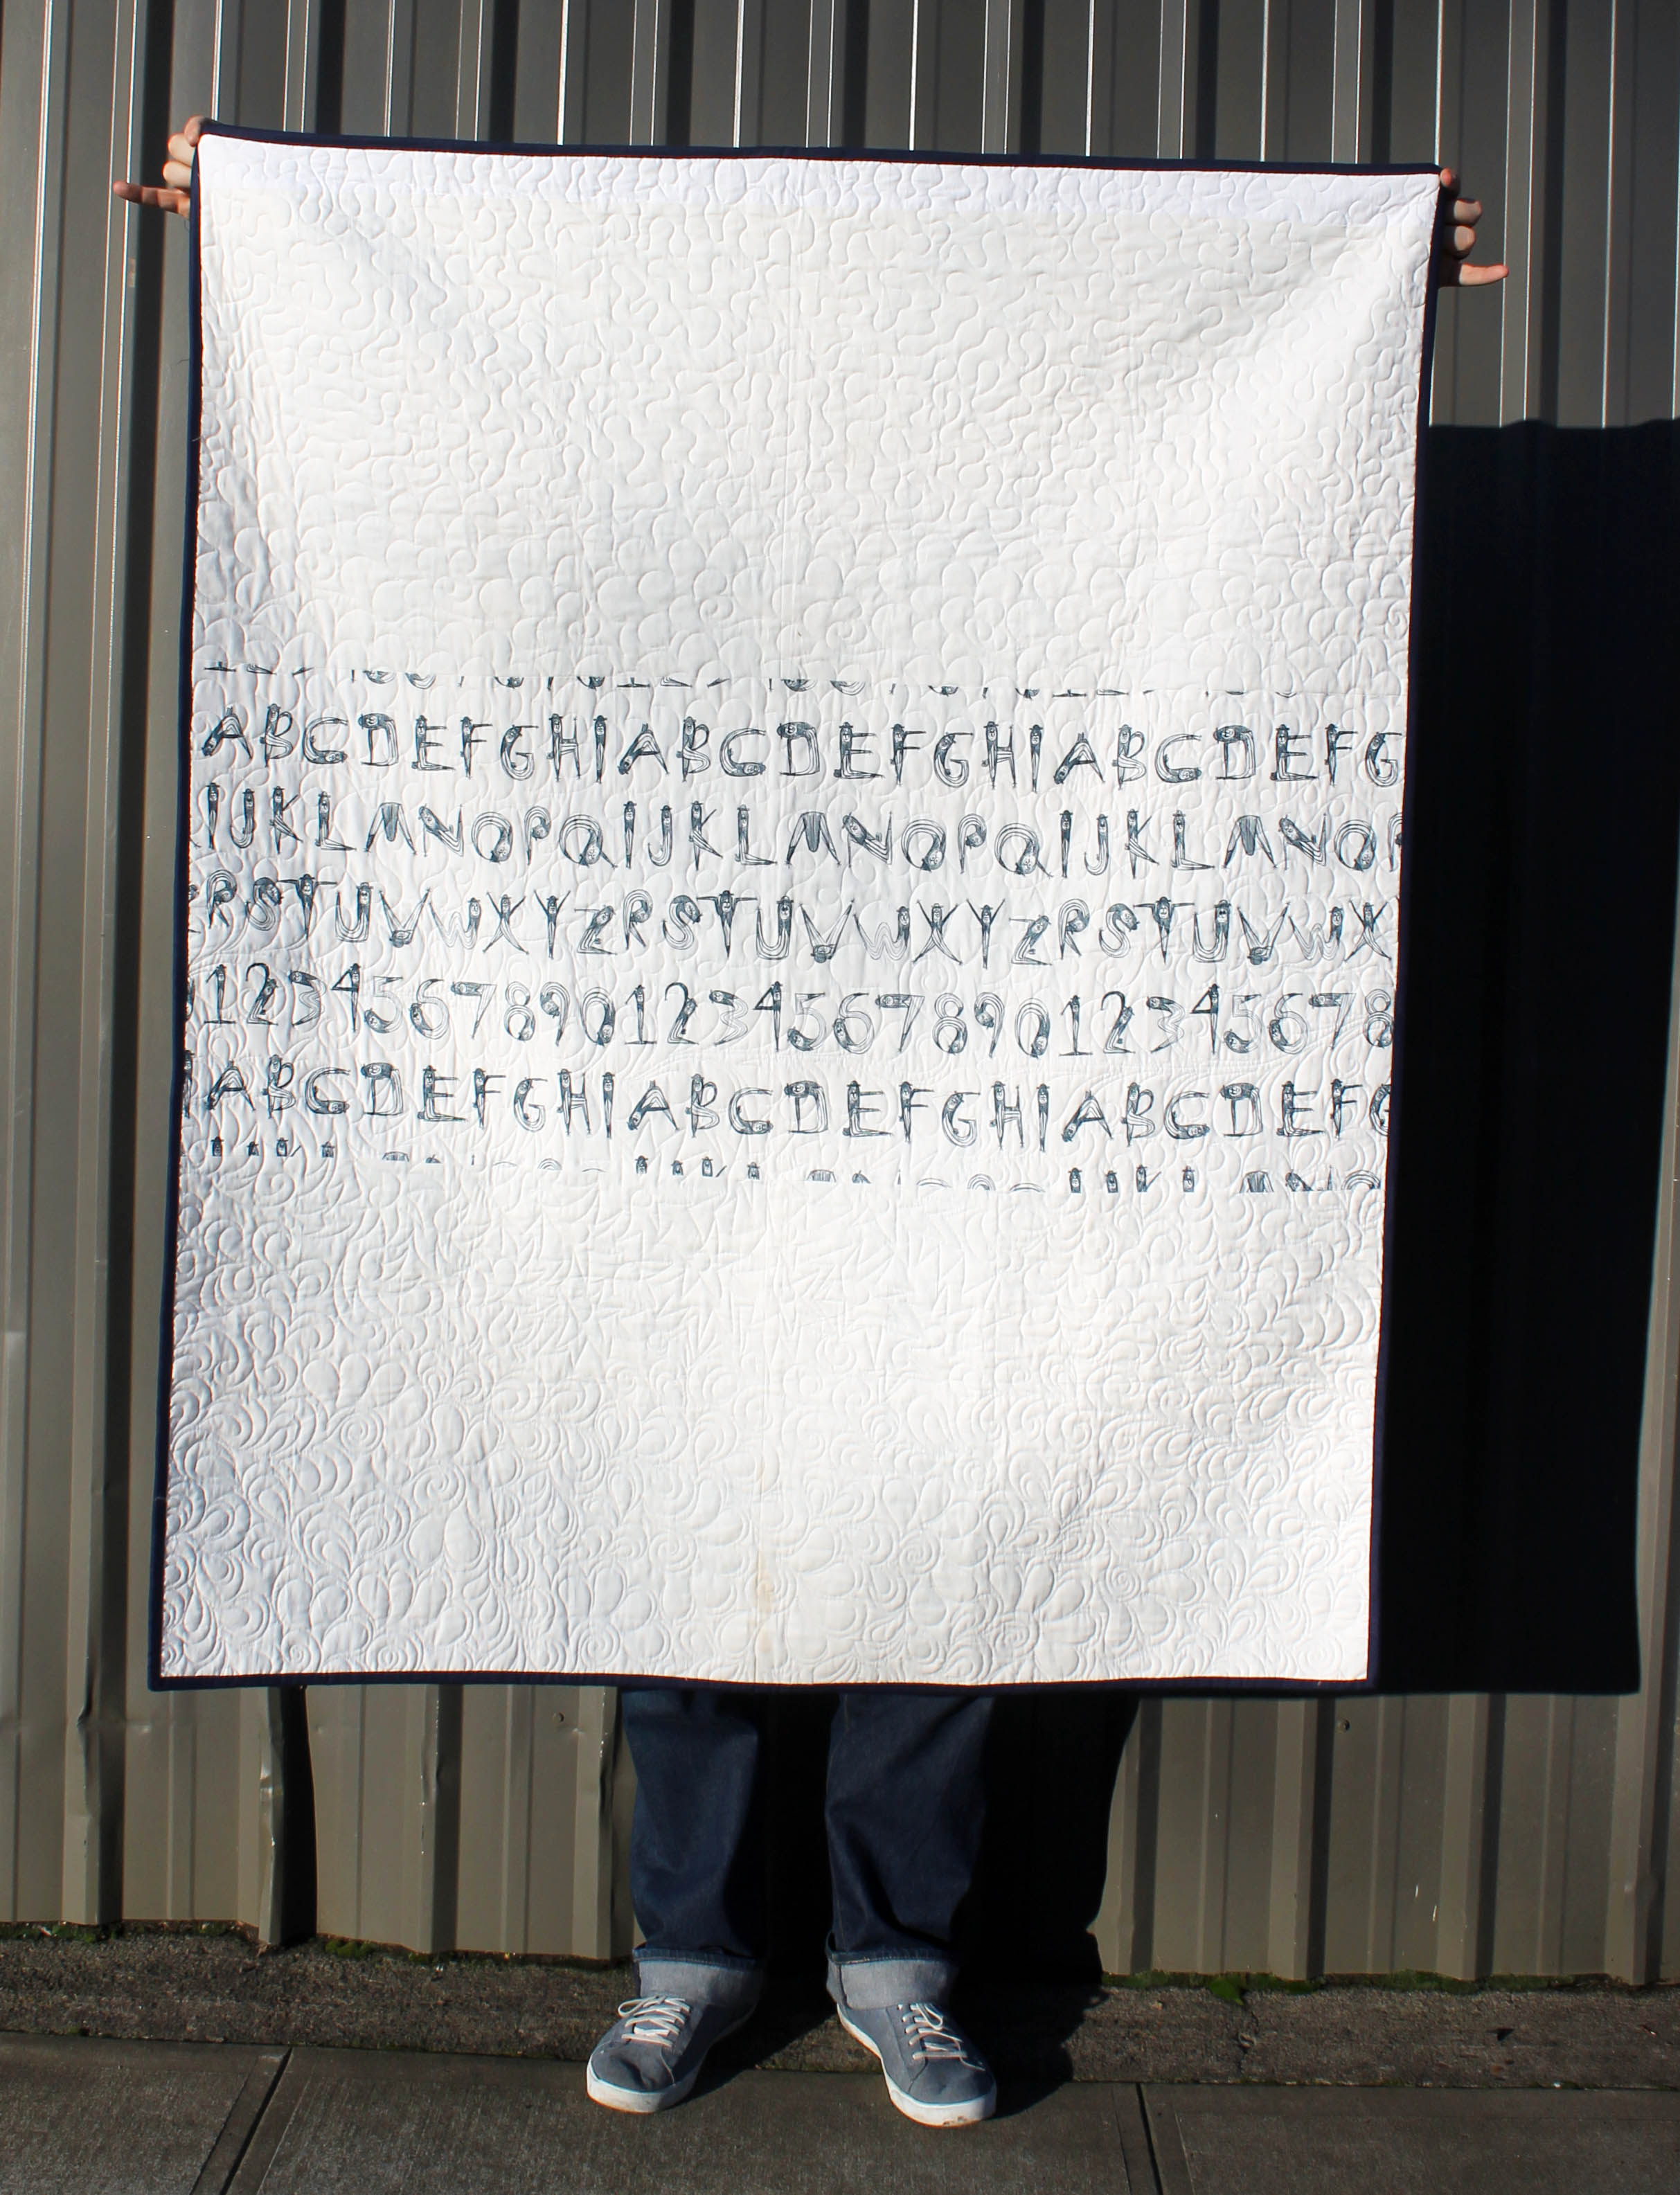 ABCDEFGHIABCDEFGHIABCDEFG
IJKLMNOPQIJKLMNOPQIJKLMNOP
RSTUVWXYZRSTUVWXYZRSTUVWX
1234567890123456789012345678
ABCDEFGHIABCDEFGHIABCDEFG